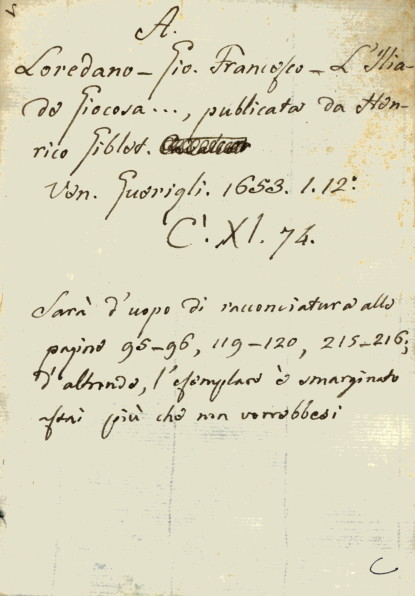 A.
Loredano – Gio. Francesco – L'Ilia-
de Giocosa..., publicata da Hen-
rico Giblet.
Ven. Guerigli. 1653. 1. 12.°
C. XI. 74.
Sarà d'uopo di racconciatura alle
pagine 95–96, 119–120, 215–216;
d'altronde, l'esemplare è smarginato
assai più che non vorrebbesi